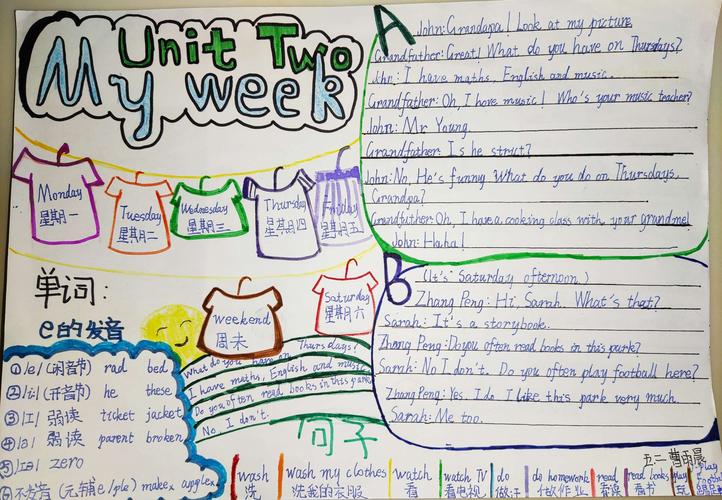 Unit Two
My week
A
John: Grandapa! Look at my picture
Grandfather: Great! What do you have on Thursdays?
John: I have maths, English and music.
Grandfather: Oh, I have music! Who's your music teacher?
John: Mr Young.
Grandfather: Is he strict?
John: No, He's funny. What do you do on Thursdays,
Grandpa?
Grandfather: Oh, I have a cooking class with your grandma!
John: Haha!
Monday
星期一
Tuesday
星期二
Wednesday
星期三
Thursday
星期四
Friday
星期五
weekend
周末
Saturday
星期六
B
(It's Saturday afternoon.)
Zhang Peng: Hi, Sarah. What's that?
Sarah: It's a storybook.
Zhang Peng: Do you often read books in this park?
Sarah: No I don't. Do you often play football here?
Zhang Peng: Yes. I do I like this park very much.
Sarah: Me too.
单词:
e的发音
①/e/(闭音节) rad bed
②/i:/(开音节) he these
③/I/ 弱读 ticket jacket
④/ə/ 弱读 parent broken
⑤/Iə/ zero
What do you have on Thursdays?
I have maths, English and music
Do you often read books in this park
No I don't.
句子
wash
洗
wash my clothes
洗我的衣服
watch
看
watch TV
看电视
do
do homework
做作业
read
看读
read books
看书
play
五二